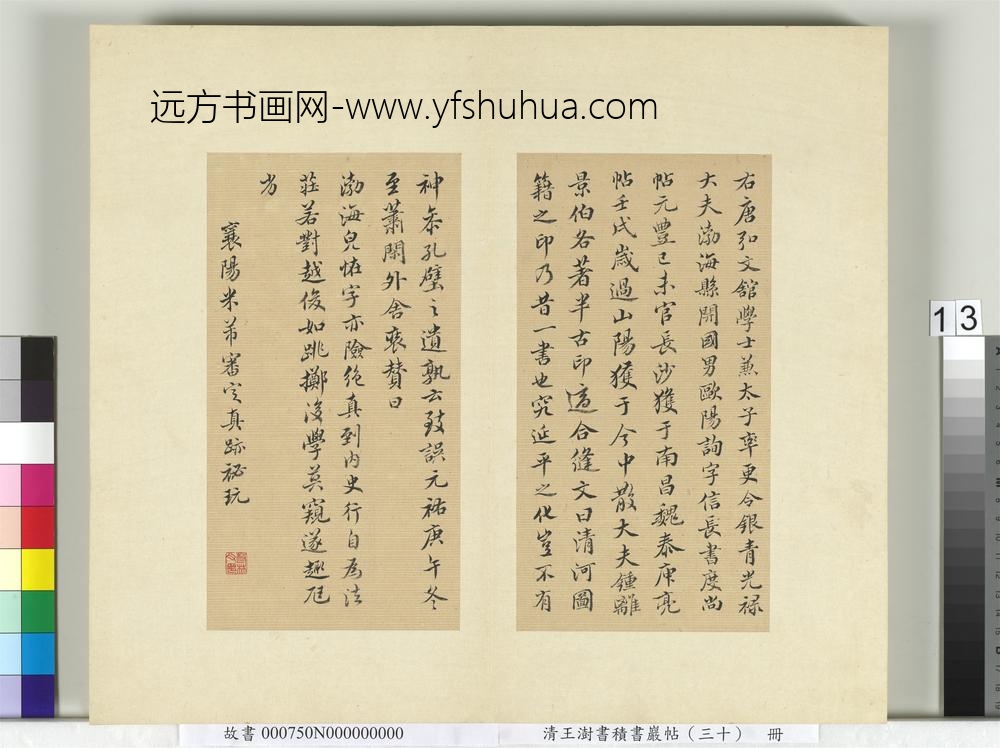 远方书画网-www.yfshuhua.com
右唐弘文館學士兼太子率更令銀青光禄
大夫渤海縣開國男歐陽詢字信長書度尚
帖元豐己未官長沙獲于南昌魏泰庾亮
帖壬戌歲過山陽獲于今中散大夫鍾離
景伯各著半古印適合縫文曰清河圖
籍之印乃昔一書也究延平之化豈不有
神忝孔壁之遺孰云致誤元祐庚午冬
至蕭閑外舍裝贊曰
渤海兒怪字亦險絶真到內史行自為法
莊若對越俊如跳擲後學莫窺遂趣尪
劣
襄陽米芾審定真跡祕玩
故書 000750N000000000
清王澍書積書巖帖(三十) 冊
13